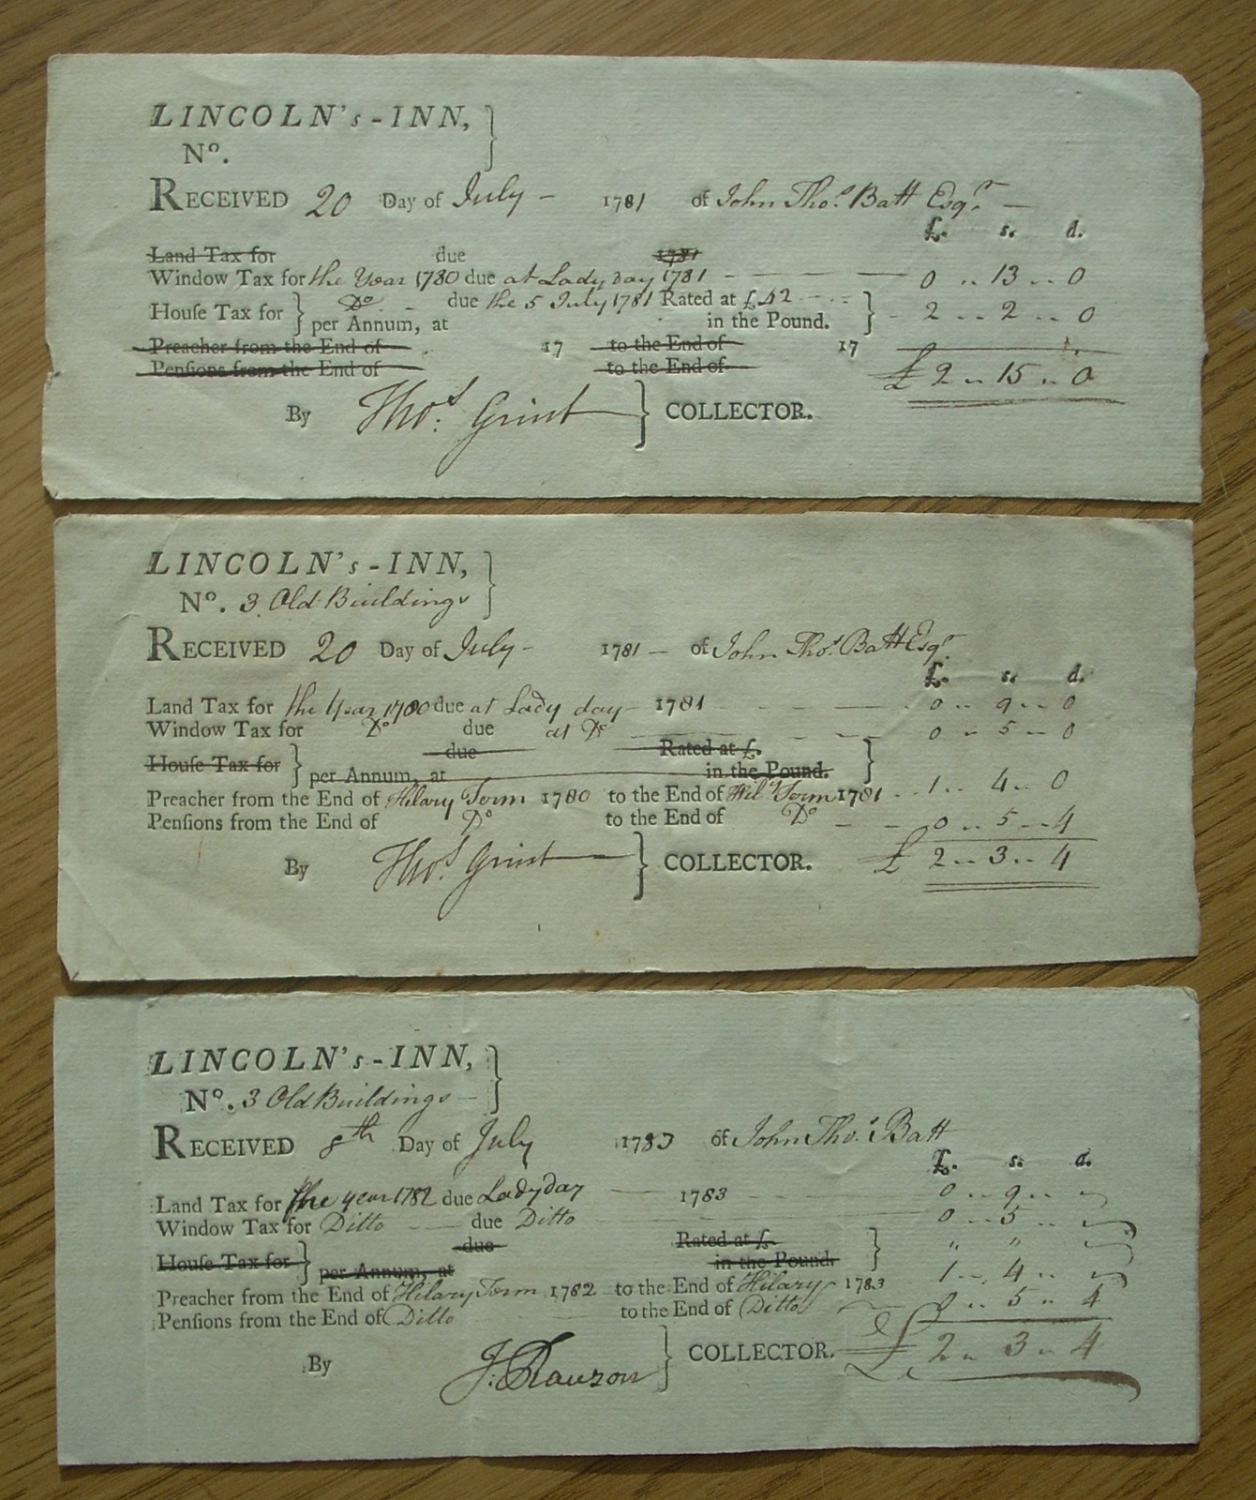 LINCOLN's-INN, }
Nº.
RECEIVED 20 Day of July - 1781 of John Thos. Batt Esqr. -
£. s. d.
Land Tax for due 1781
Window Tax for the Year 1780 due at Lady day 1781 - 0 .. 13 .. 0
Houſe Tax for } Do. - due the 5 July 1781 Rated at £42 } 2 .. 2 .. 0
per Annum, at in the Pound.
Preacher from the End of 17 to the End of 17
Penſions from the End of to the End of £ 2 .. 15 .. 0
By Thos. Grint } COLLECTOR.
LINCOLN's-INN, }
Nº. 3 Old Buildings
RECEIVED 20 Day of July - 1781 - of John Thos. Batt Esqr.
£. s. d.
Land Tax for the Year 1780 due at Lady day - 1781 - 0 .. 9 .. 0
Window Tax for Do due at Do - 0 .. 5 .. 0
Houſe Tax for } due Rated at £. }
per Annum, at in the Pound.
Preacher from the End of Hilary Term 1780 to the End of Hily. Term 1781 .. 1 .. 4 .. 0
Penſions from the End of Do to the End of Do - 0 .. 5 .. 4
By Thos. Grint } COLLECTOR. £ 2 .. 3 .. 4
LINCOLN's-INN, }
Nº. 3 Old Buildings -
RECEIVED 8th Day of July 1783 of John Thos. Batt
£. s. d.
Land Tax for the year 1782 due Ladyday - 1783 0 .. 9 .. -
Window Tax for Ditto - due Ditto 0 .. 5 .. -
Houſe Tax for } due Rated at £. } " " -
per Annum, at in the Pound.
Preacher from the End of Hilary Term 1782 to the End of Hilary 1783 1 .. 4 .. -
Penſions from the End of Ditto to the End of Ditto 0 .. 5 .. 4
By J: Rawson } COLLECTOR. £ 2 .. 3 .. 4